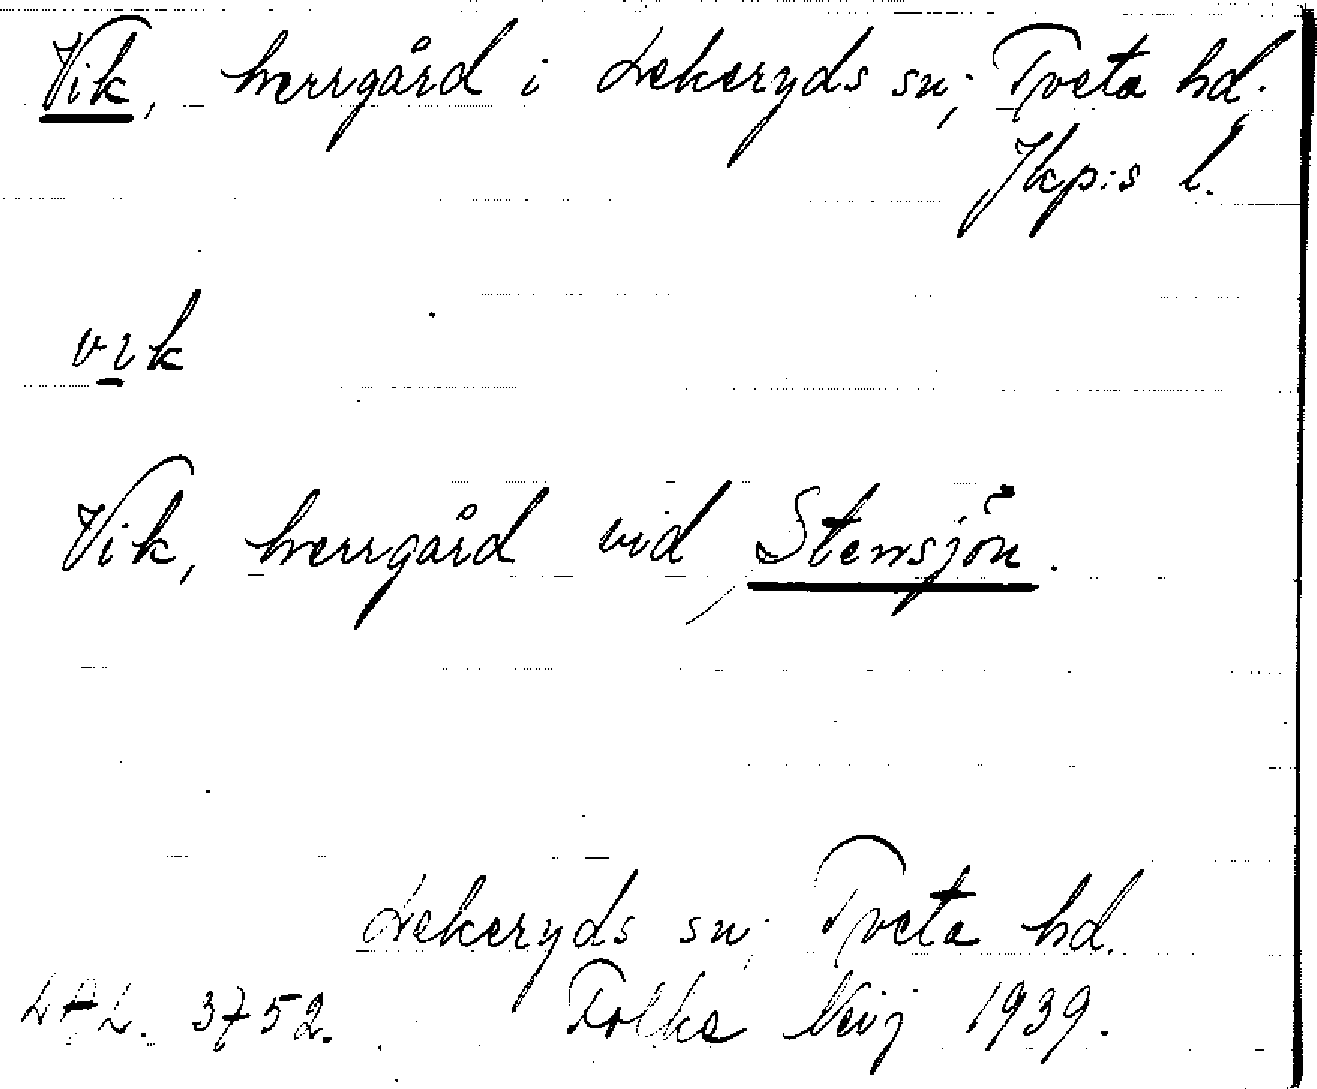 Vik, herrgård i Lekeryds sn; Tveta hd.
Jkp:s l.
vik
Vik, herrgård vid Stensjön.
Lekeryds sn; Tveta hd.
LAL. 3752. Folke Neij 1939.